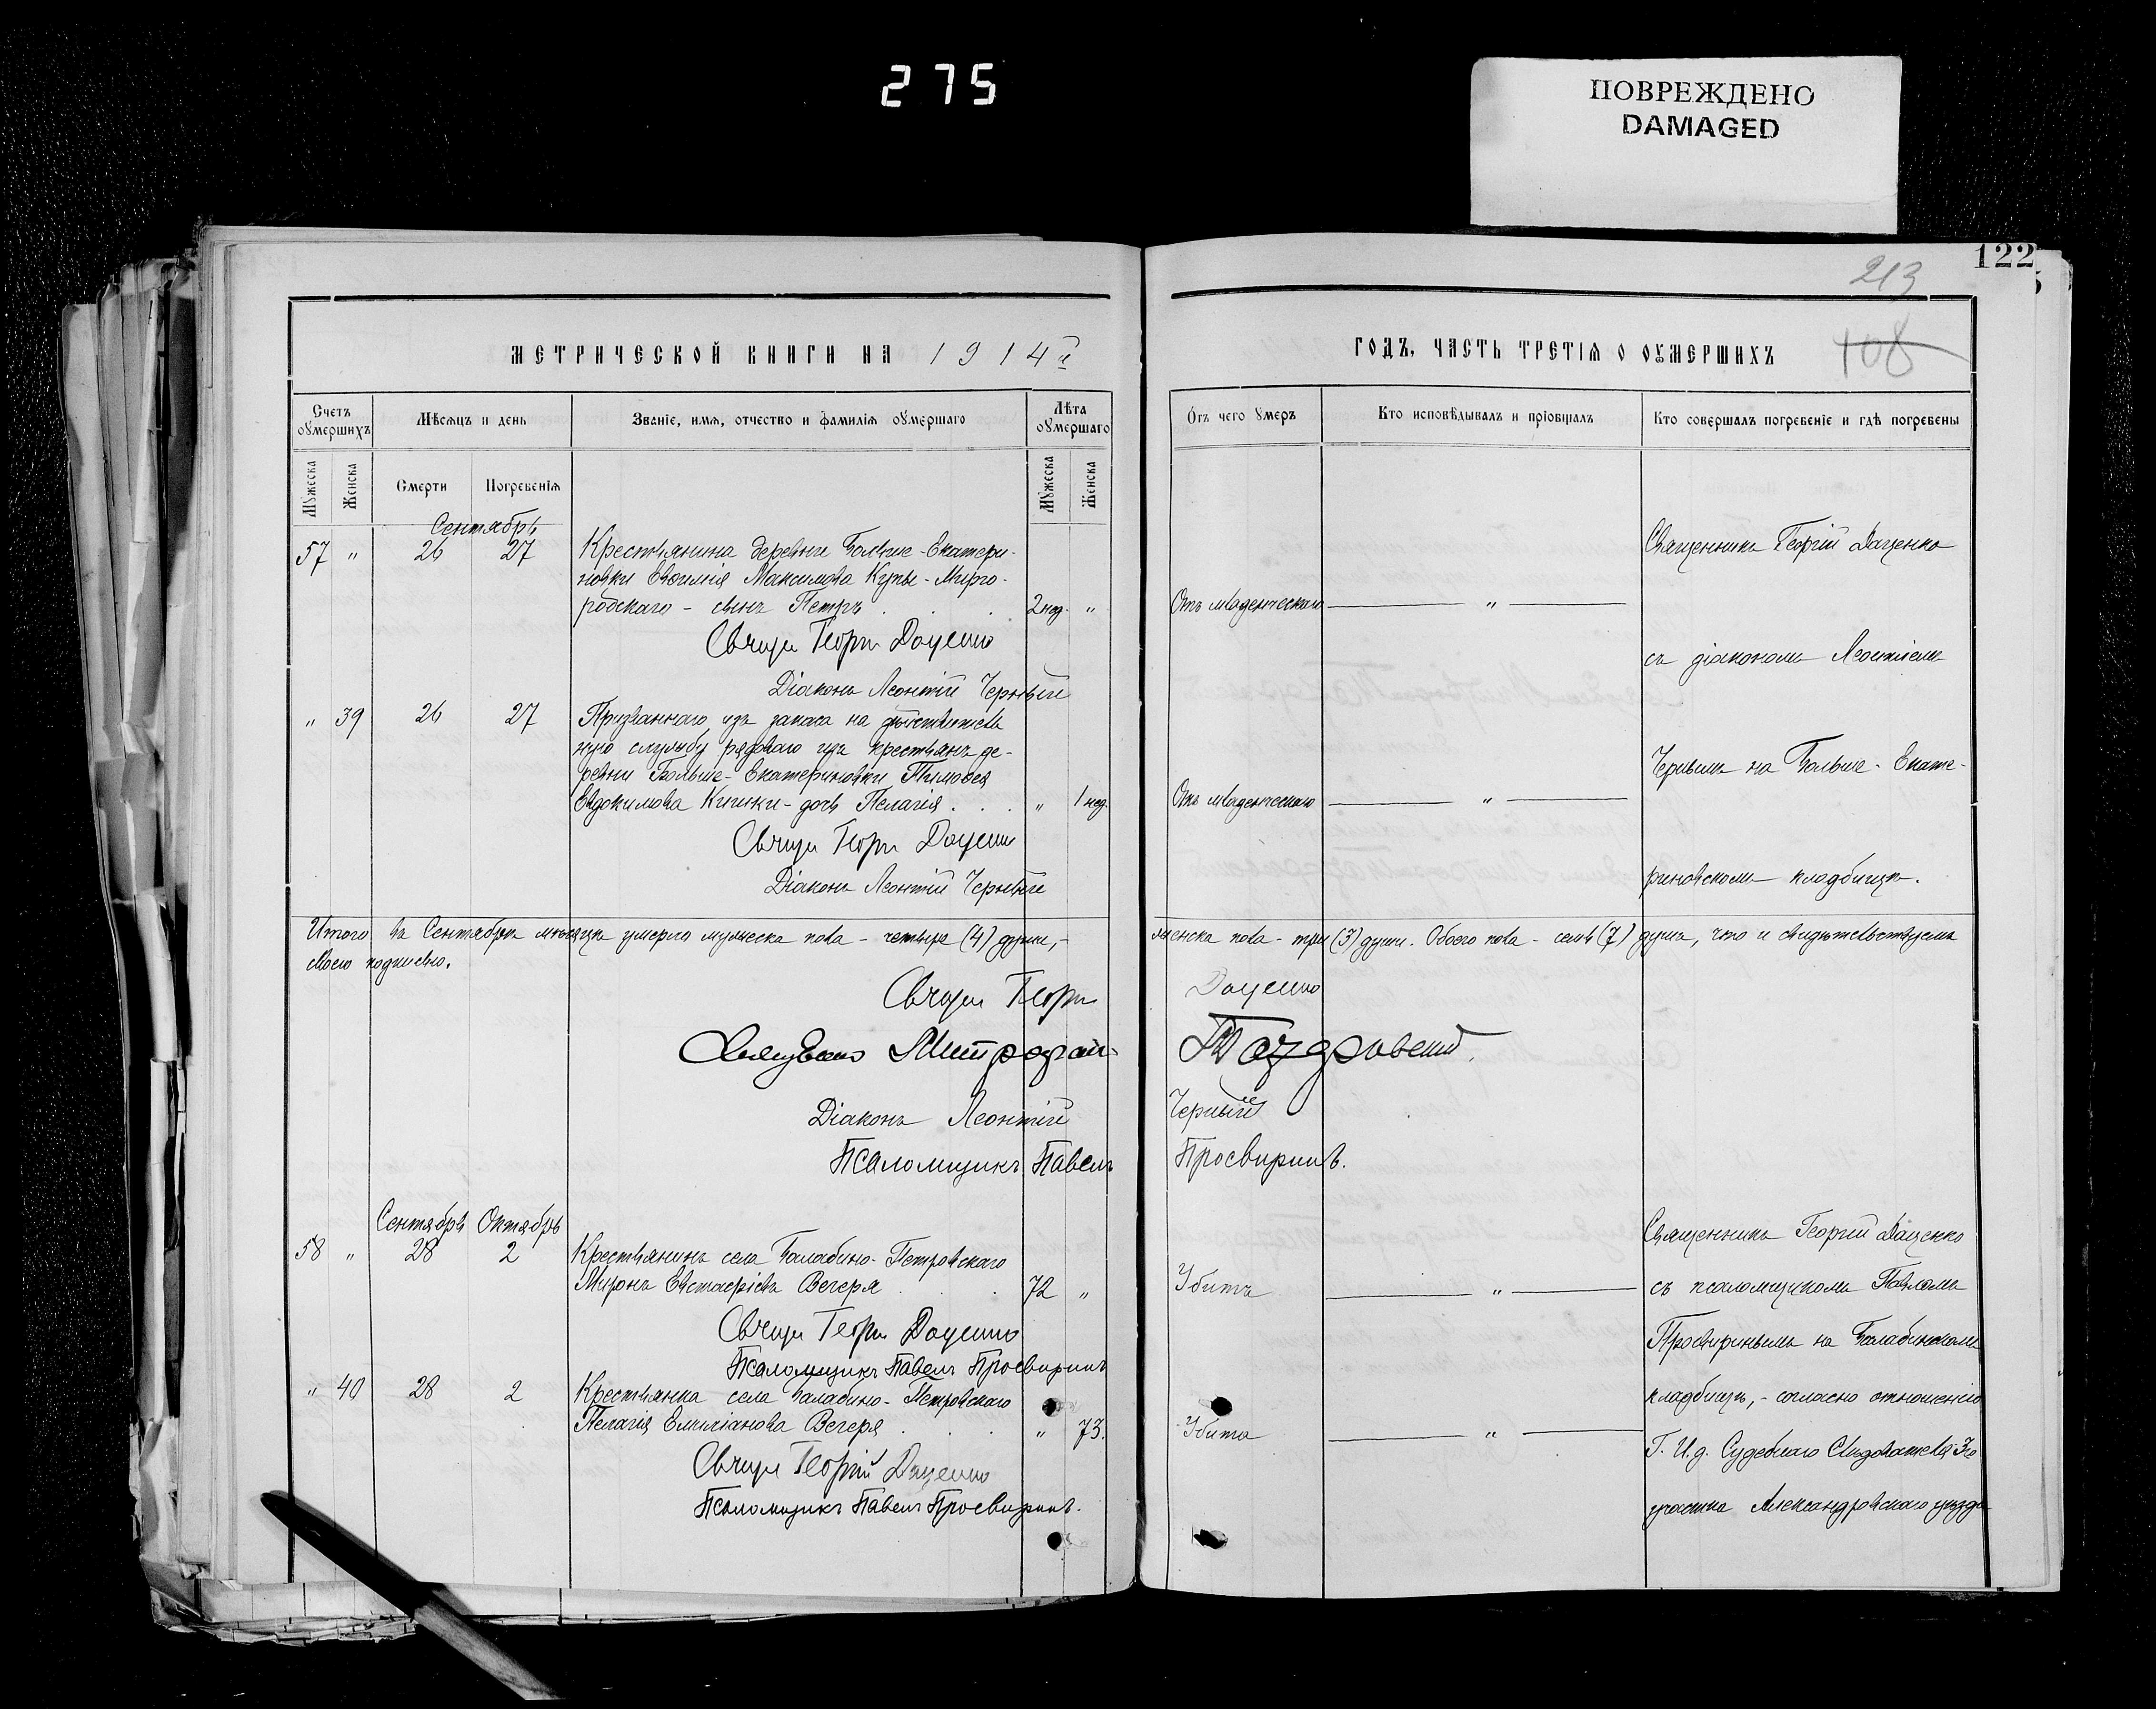 275
ПОВРЕЖДЕНО
DAMAGED
122
213
108
МЕТРИЧЕСКОЙ КНИГИ НА 1914й
ГОДЪ, ЧАСТЬ ТРЕТІЯ О ОУМЕРШИХЪ
Счетъ оумершихъ
Мѣсяцъ и день
Званіе, имя, отчество и фамилія оумершаго
Лѣта оумершаго
Отъ чего умеръ
Кто исповѣдывалъ и пріобщалъ
Кто совершалъ погребеніе и гдѣ погребены
Мужеска
Женска
Смерти
Погребенія
Мужеска
Женска
Сентябрь
57 " 26 27 Крестьянина деревни Больше-Екатери-
новки Евѳимія Максимова Купы-Мирго-
родскаго - сынъ Петръ . . . 2 нед. " Отъ младенческаго — " —
Свящ Георгій Доценко
Діаконъ Леонтій Черный
Священникъ Георгій Даценко
съ діакономъ Леонтіемъ
Чернымъ на Больше-Екате-
риновскомъ кладбищѣ.
" 39 26 27 Призваннаго изъ запаса на дѣйствитель
ную службу рядового изъ крестьянъ де-
ревни Больше-Екатериновки Тимоѳея
Евдокимова Кишки - дочь Пелагія . . . " 1 нед. Отъ младенческаго — " —
Свящ Георгій Доценко
Діаконъ Леонтій Черный
Итого въ Сентябрѣ мѣсяцѣ умерло мужеска пола - четыре (4) души, - женска пола - три (3) души. Обоего пола - семь (7) душъ, что и свидѣтельствуемъ
своею подписью.
Свящ Георгій Доценко
Священ Митрофан
Діаконъ Леонтій Черный
Псаломщикъ Павелъ Просвиринъ.
Сентябрь Октябрь
58 " 28 2 Крестьянинъ села Балабино-Петровскаго
Миронъ Евстафіевъ Вечеря . . 72 " Убитъ — " —
Свящ Георгій Доценко
Псаломщикъ Павелъ Просвиринъ
" 40 28 2 Крестьянка села Балабино-Петровскаго
Пелагія Емиліанова Вечеря . . . " 73. Убита — " —
Свящ Георгій Доценко
Псаломщикъ Павелъ Просвиринъ.
Священникъ Георгій Даценко
съ псаломщикомъ Павломъ
Просвиринымъ на Балабинскомъ
кладбищѣ, - согласно отношенію
Г. И.д. Судебнаго Слѣдователя 3го
участка Александровскаго уѣзда